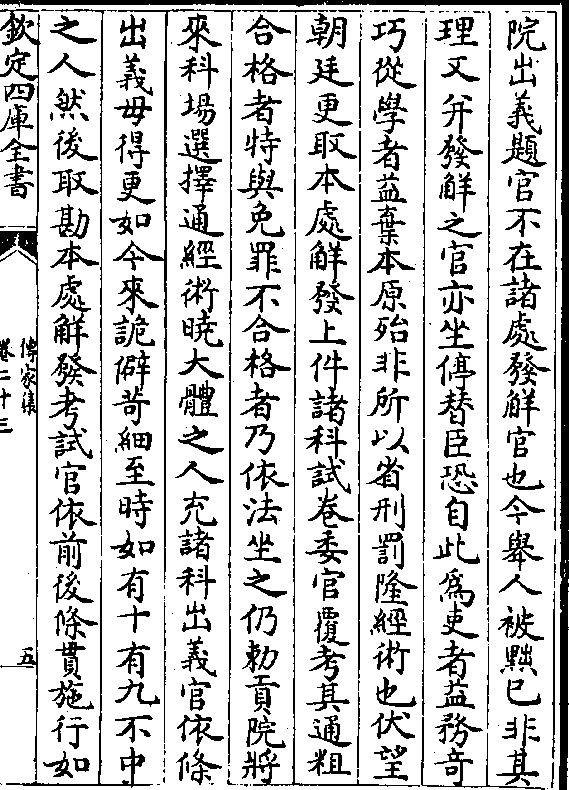 院出義題官不在諸處發解官也今舉人被黜已非其
理又并發解之官亦坐停替臣恐自此為吏者益務奇
巧從學者益棄本原殆非所以省刑罰隆經術也伏望
朝廷更取本處解發上件諸科試卷委官覆考其通粗
合格者特與免罪不合格者乃依法坐之仍勅貢院將
來科場選擇通經術曉大體之人充諸科出義官依條
出義毋得更如今來詭僻苛細至時如有十有九不中
之人然後取勘本處解發考試官依前後條貫施行如
欽定四庫全書
傳家集
卷二十三
五